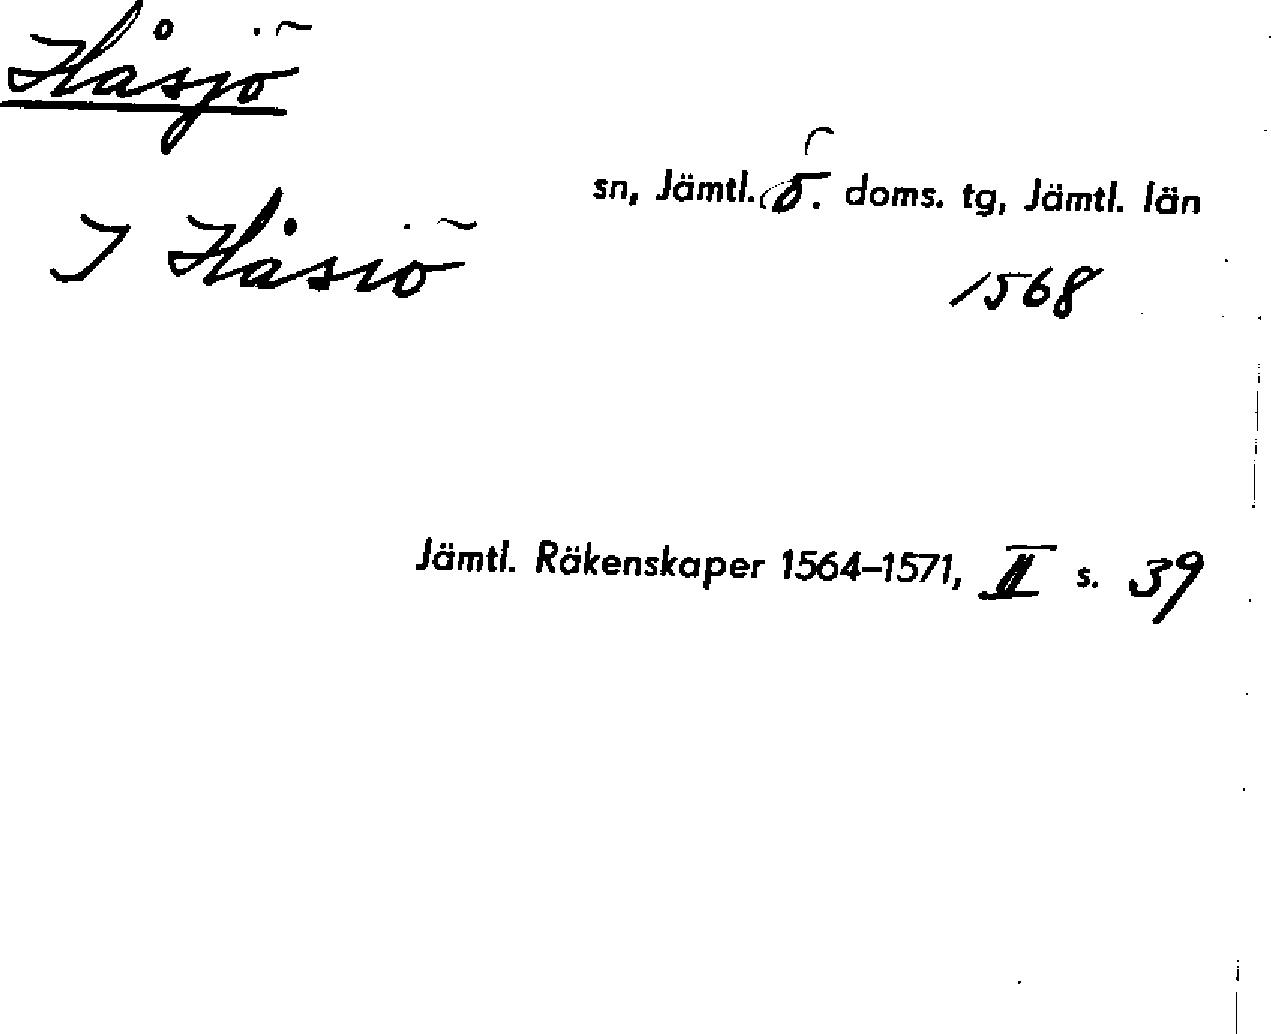 Håsjö
sn, Jämtl. ö. doms. tg, Jämtl. län
I Håsiö
1568
Jämtl. Räkenskaper 1564–1571, II s. 39